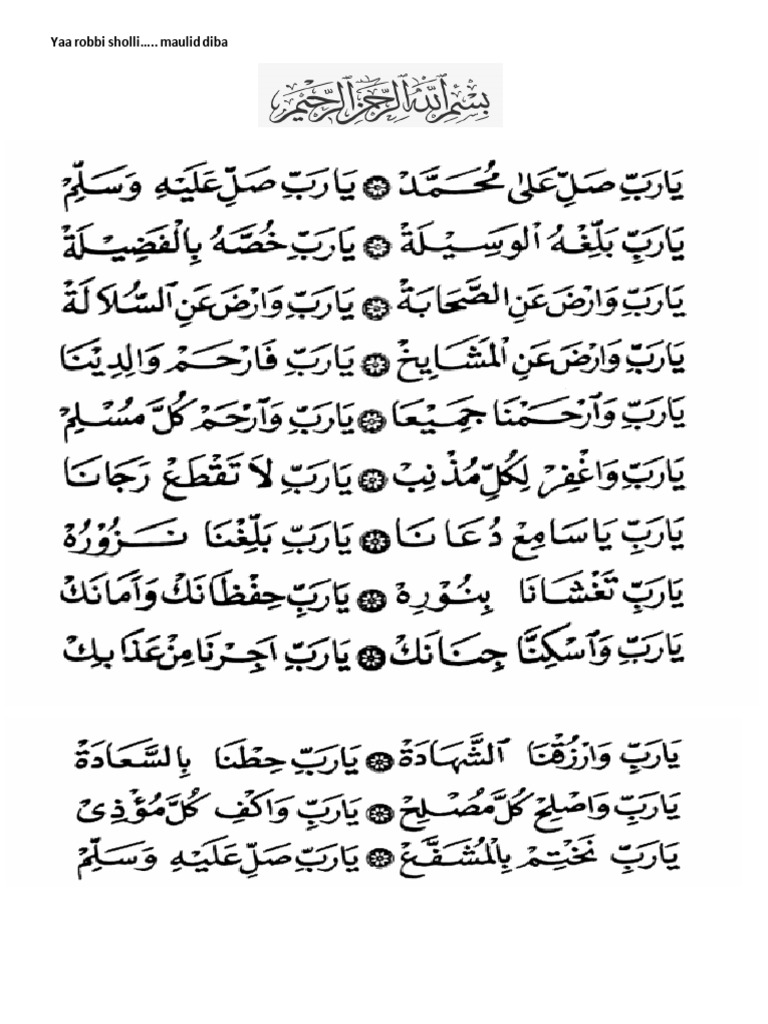 Yaa robbi sholli….. maulid diba
بِسْمِ ٱللَّهِ ٱلرَّحْمَٰنِ ٱلرَّحِيمِ
يَارَبِّ صَلِّ عَلىٰ مُحَمَّدْ ۞ يَارَبِّ صَلِّ عَلَيْهِ وَسَلِّمْ
يَارَبِّ بَلِّغْهُ الْوَسِيْلَةْ ۞ يَارَبِّ خُصَّهُ بِالْفَضِيْلَةْ
يَارَبِّ وَارْضَ عَنِ الصَّحَابَةْ ۞ يَارَبِّ وَارْضَ عَنِ السُّلاَلَةْ
يَارَبِّ وَارْضَ عَنِ الْمَشَايِخْ ۞ يَارَبِّ فَارْحَمْ وَالِدِيْنَا
يَارَبِّ وَارْحَمْنَا جَمِيْعَا ۞ يَارَبِّ وَارْحَمْ كُلَّ مُسْلِمْ
يَارَبِّ وَاغْفِرْ لِكُلِّ مُذْنِبْ ۞ يَارَبِّ لاَ تَقْطَعْ رَجَانَا
يَارَبِّ يَاسَامِعْ دُعَانَا ۞ يَارَبِّ بَلِّغْنَا نَزُوْرُهْ
يَارَبِّ تَغْشَانَا بِنُوْرِهْ ۞ يَارَبِّ حِفْظَانَكْ وَأَمَانَكْ
يَارَبِّ وَاسْكِنَّا جِنَانَكْ ۞ يَارَبِّ اَجِرْنَا مِنْ عَذَابِكْ
يَارَبِّ وَارْزُقْنَا الشَّهَادَةْ ۞ يَارَبِّ حِطْنَا بِالسَّعَادَةْ
يَارَبِّ وَاصْلِحْ كُلَّ مُصْلِحْ ۞ يَارَبِّ وَاكْفِ كُلَّ مُؤْذِىْ
يَارَبِّ نَخْتِمْ بِالْمُشَفَّعْ ۞ يَارَبِّ صَلِّ عَلَيْهِ وَسَلِّمْ